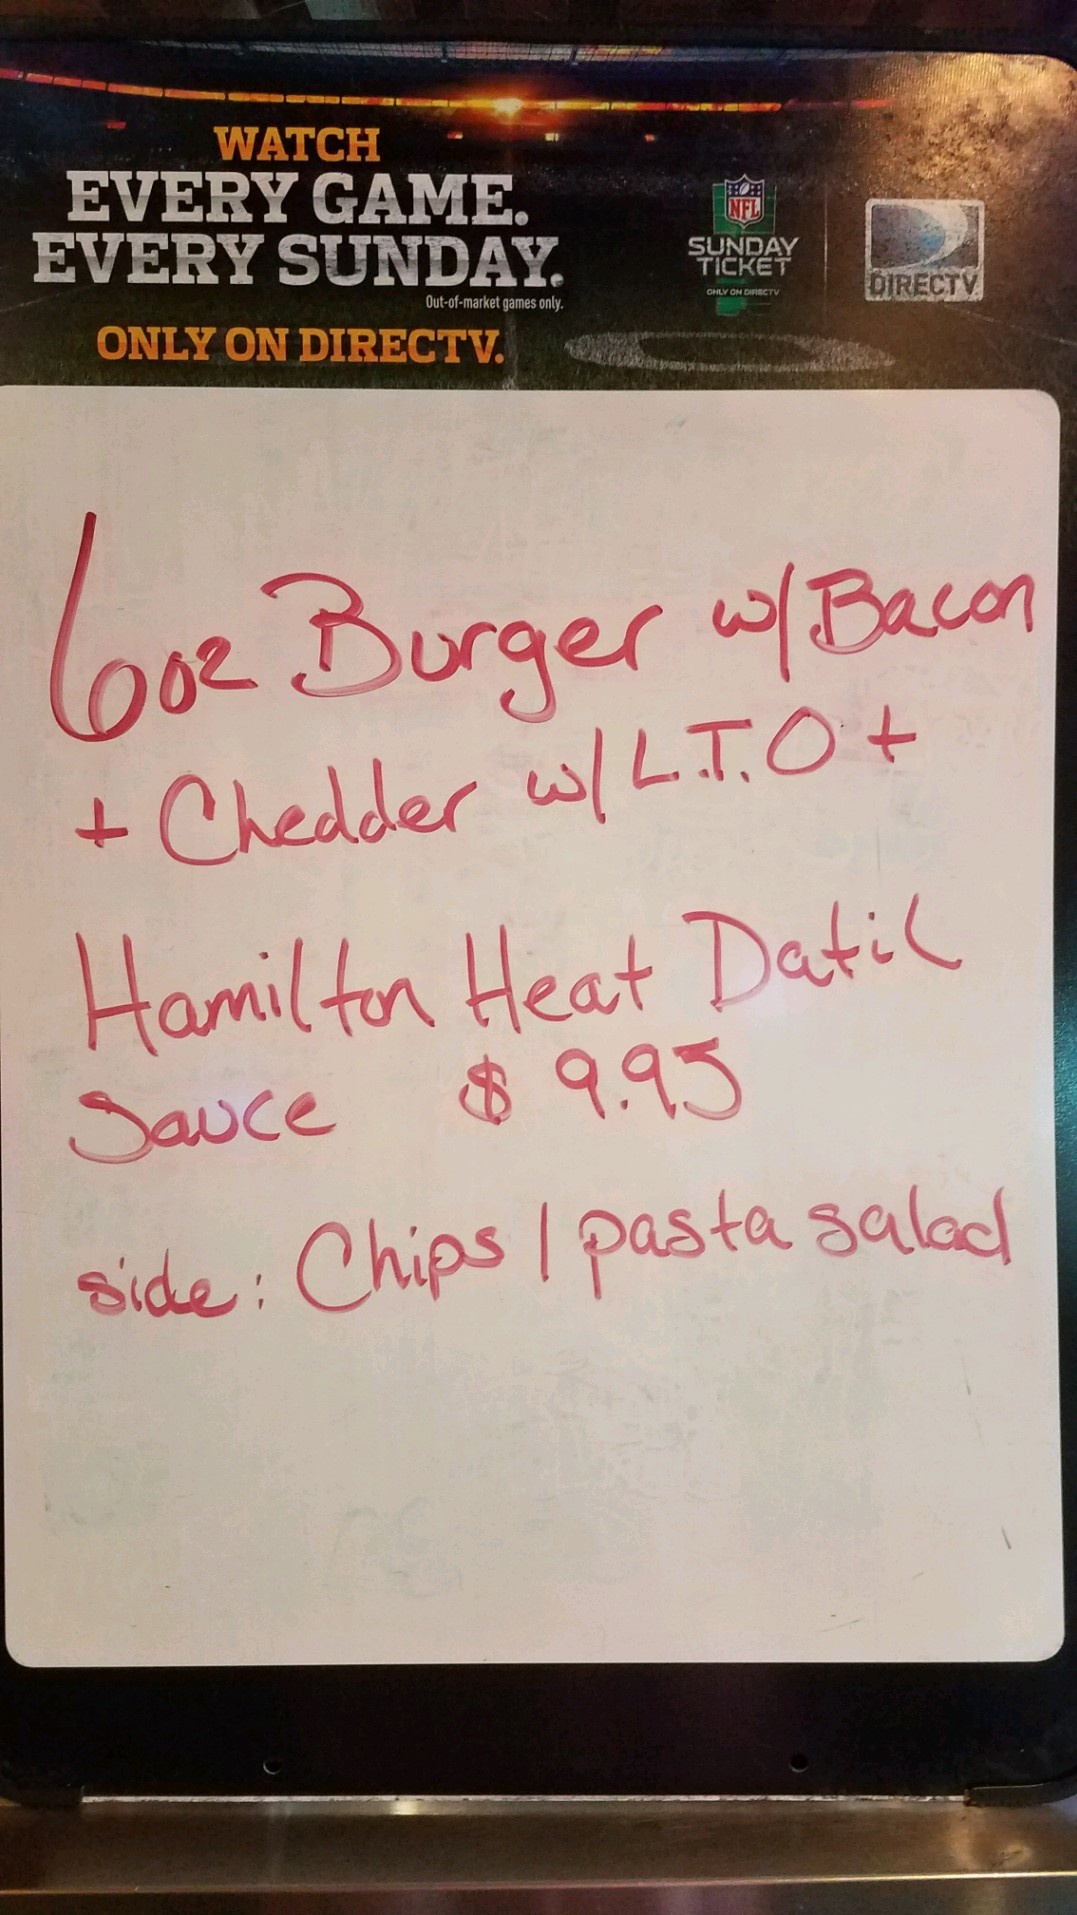 WATCH
EVERY GAME.
EVERY SUNDAY.
Out-of-market games only.
ONLY ON DIRECTV.
NFL
SUNDAY
TICKET
ONLY ON DIRECTV
DIRECTV
6oz Burger w/ Bacon
+ Chedder w/ L.T.O +
Hamilton Heat Datil
Sauce $ 9.95
side: Chips / pasta salad